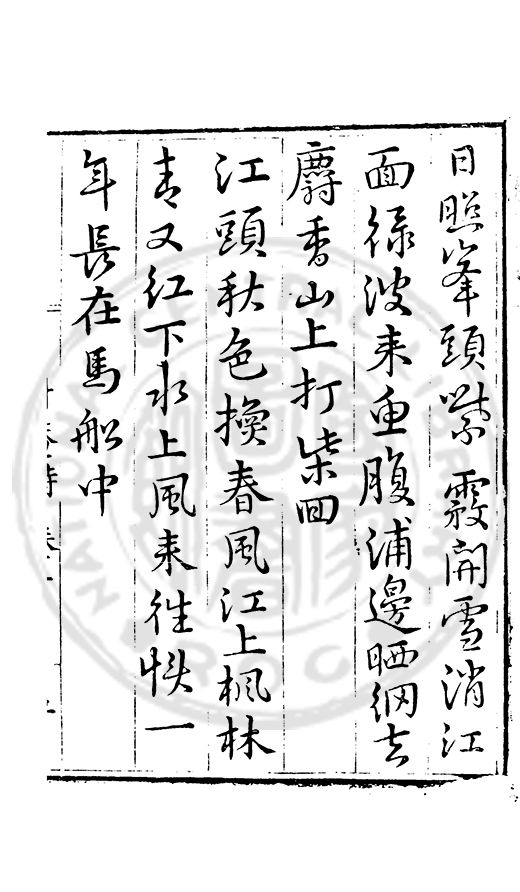 日照峯頭紫霧開雪消江
面綠波来魚腹浦邊晒網去
麝香山上打柴囬
江頭秋色換春風江上楓林
青又紅下水上風来往慣一
年長在馬船中